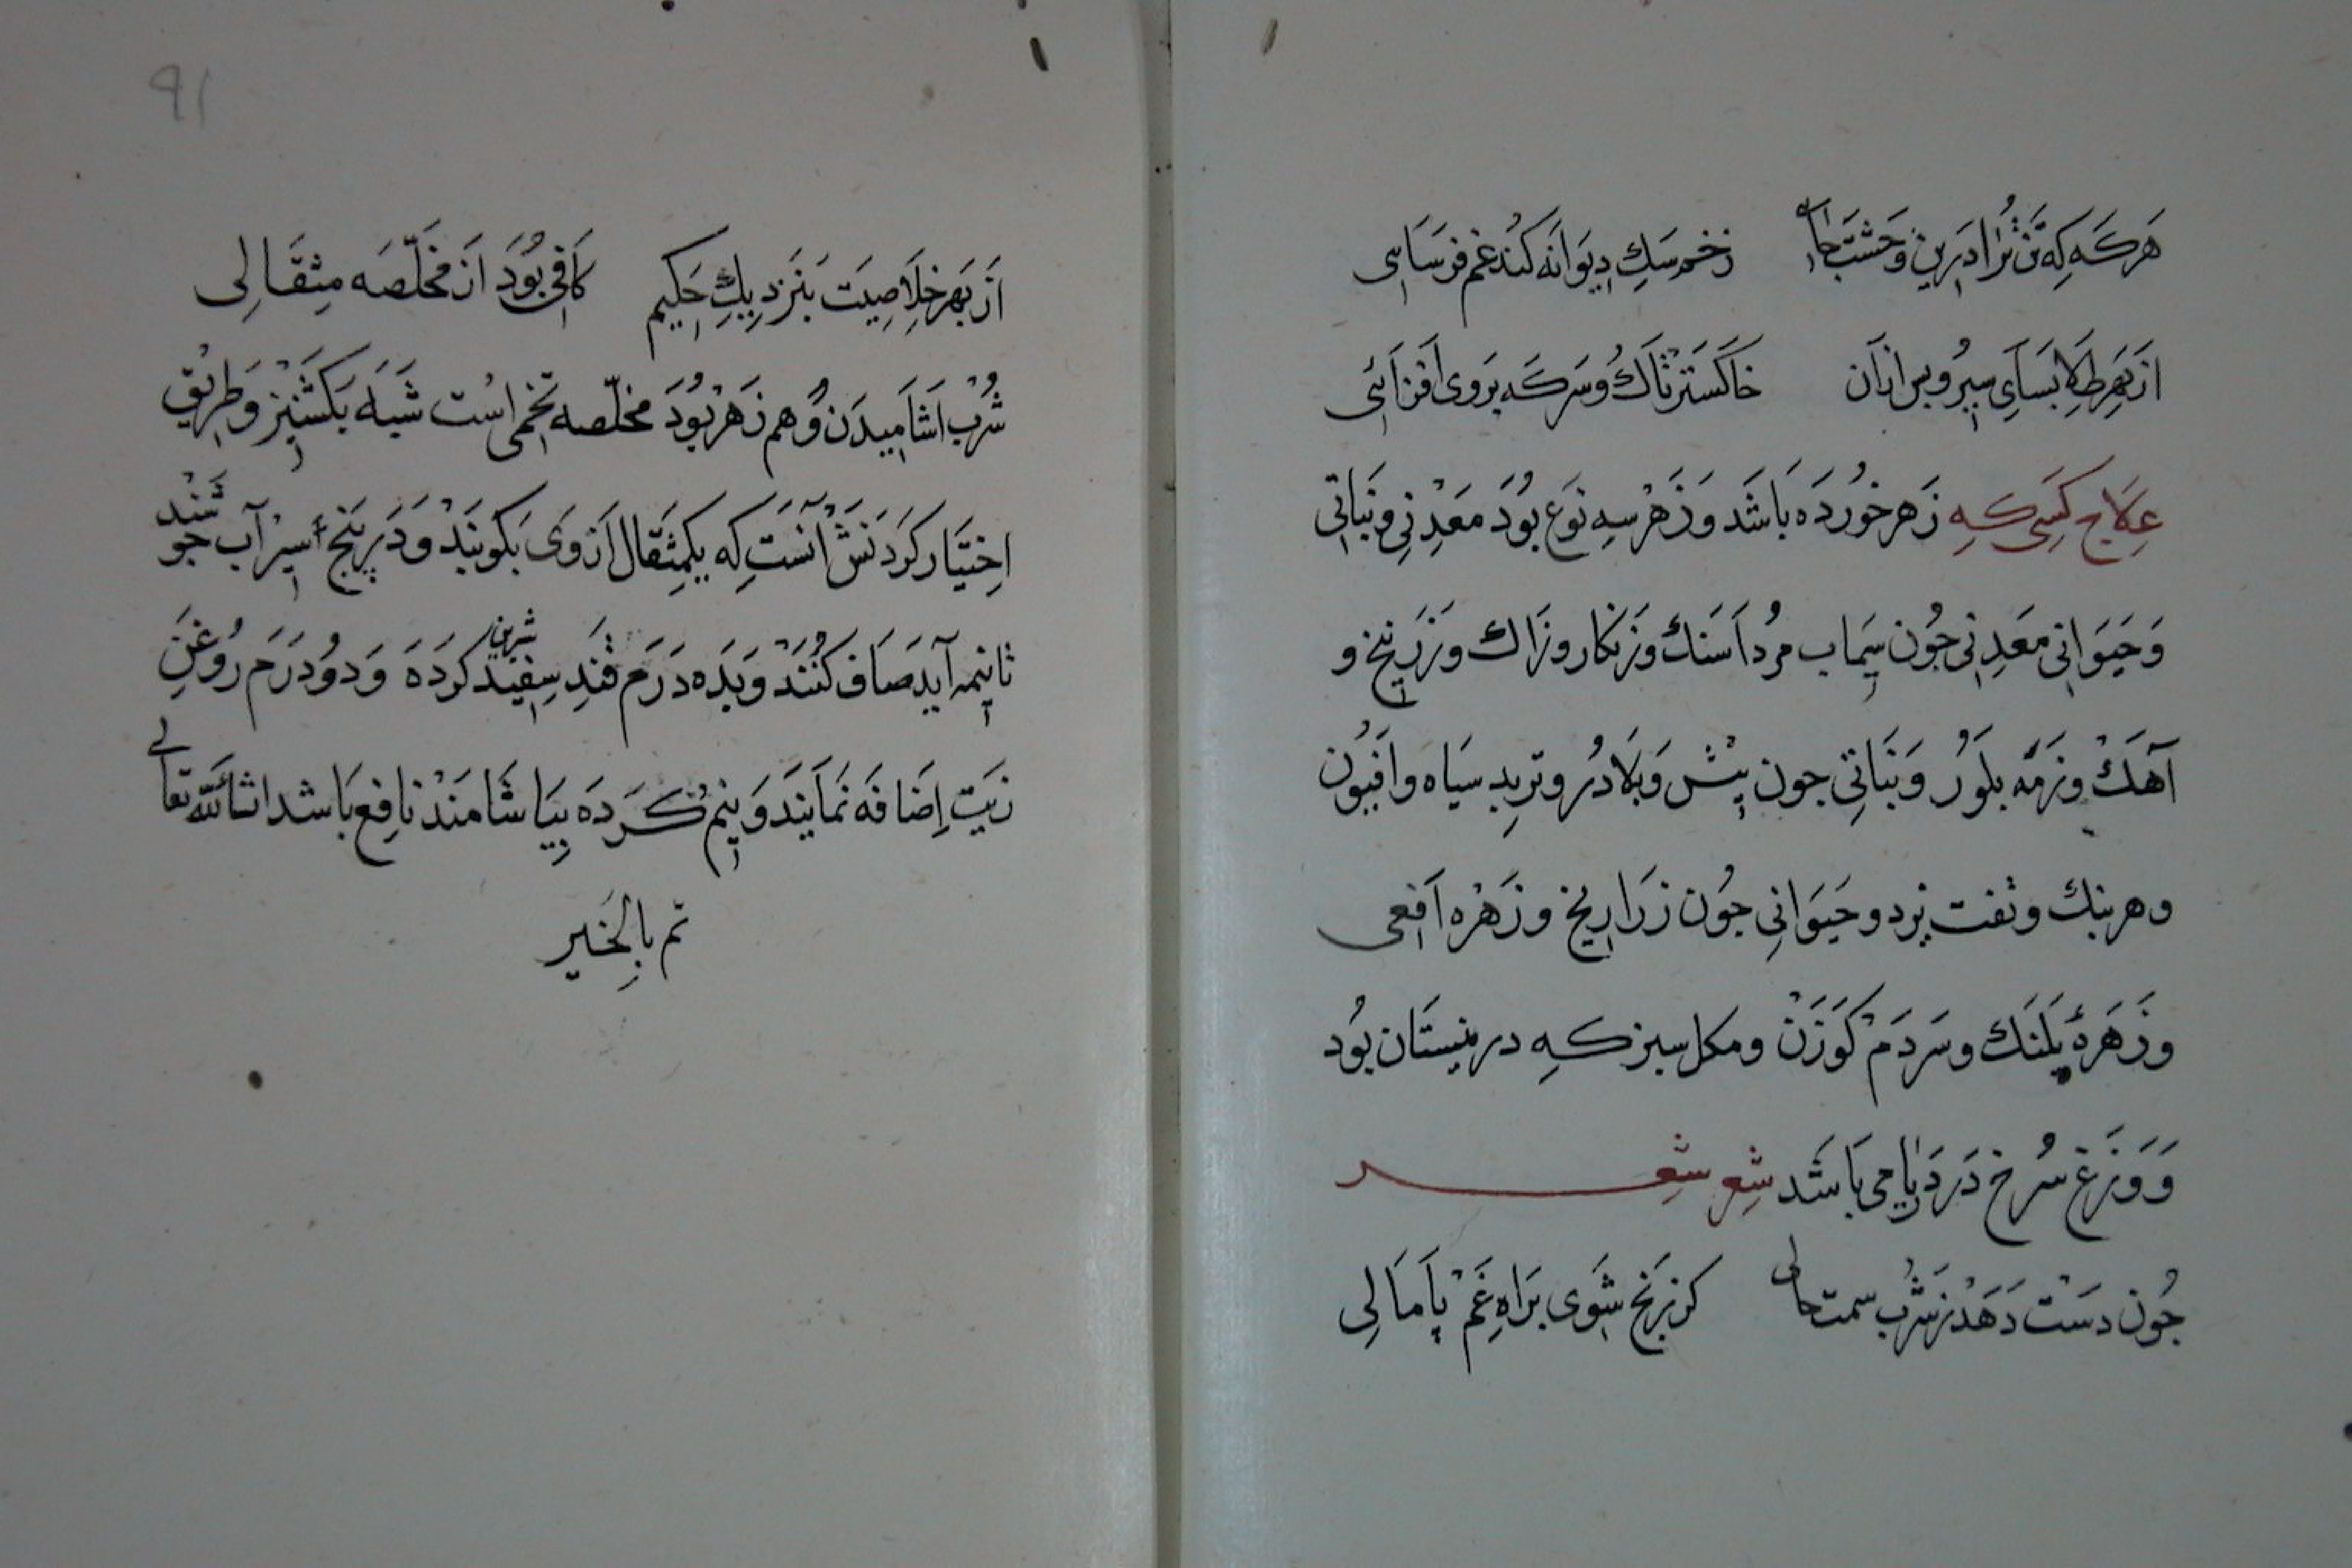 هرکه که تن ترا درین وحشت جای زخم سك دیوانه کند غم فرسای
از بهر طلا بسای سیر و پس ازان خاکستر تاك و سرکه بروی افزائی
علاج کسی که زهر خورده باشد و زهر سه نوع بود معدنی و نباتی
و حیوانی معدنی جون سیماب مرداسنك و زنکار و زاك و زرنیخ و
آهك و نرمه بلور و نباتی جون بیش و بلادر و تربد سیاه و افیون
و هر بنك و تفت برد و حیوانی جون زراریخ و زهره افعی
و زهرهٔ پلنك و سر دم کوزن و مکل سبز که در نیستان بود
و وزغ سرخ در دریا می باشد شعر شعر
جون دست دهد ز شرب سمت حالی کز رنج شوی براه غم پامالی
۹۱
از بهر خلاصیت بنزدیك حکیم کافی بود از مخلّصه مثقالی
شرب اشامیدن و هم زهر بود مخلّصه تخمی است شبه بکشنیز و طریق
اختیار کردنش آنست که یکمثقال ازوی بکوبند و در پنج أسیر آب جوشند
تا نیمه آید صاف کنند و بده درم قند سفید شیرین کرده و دو درم روغن
زیت اضافه نمایند و نیم کرده بیاشامند نافع باشد انشاءالله تعالی
تم بالخیر